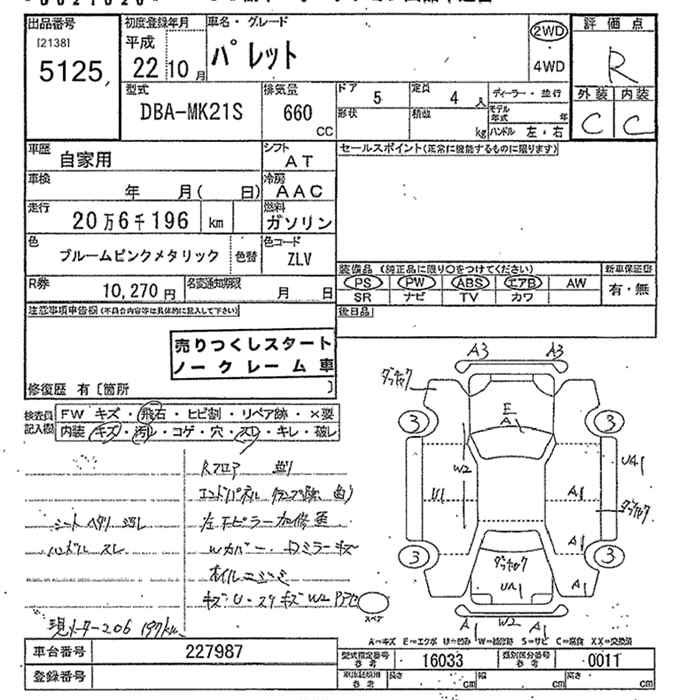 出品番号
[2138]
5125
初度登録年月
平成
22 10月
車名・グレード
パレット
2WD
・4WD
評価点
R
外装 内装
C C
型式
DBA-MK21S
排気量
660
CC
ドア
5
定員
4人
ディーラー・並行
形状
積数
kg
モデル年式 年
ハンドル 左・右
車歴
自家用
シフト
AT
セールスポイント(正常に機能するものに限ります)
車検
年 月( 日)
冷房
AAC
走行
20万6千196 km
燃料
ガソリン
色
ブルームピンクメタリック
色替
色コード
ZLV
装備品 (純正品に限り○をつけてください)
新車保証書
PS PW ABS エアB AW
有・無
SR ナビ TV カワ
R券
10,270円
名変通知期限
月 日
注意事項申告欄(不具合内容等は具体的に記入して下さい)
後日品
売りつくしスタート
ノークレーム車
修復歴 有〔箇所 〕
検査員
記入欄
FW キズ・飛石・ヒビ割・リペア跡・×要
内装 キズ・汚レ・コゲ・穴・スレ・キレ・破レ
Rフロア 曲り
シート ヘタリ 汚レ
ハンドル スレ
左
ピラー
Wカバー・Dミラーキズ
オイルニジミ
現メーター206197km
A3 A3
E
A1
3 3
W2
U1
UA1
A1
A1
3 3
A1
UA1
A1 W2 A1
スペア
A=キズ E=エクボ U=凹み W=補修跡 S=サビ C=腐食 XX=交換済
車台番号
227987
型式指定番号
参考
16033
類別区分番号
参考
0011
登録番号
参考
長さ cm
幅 cm
高さ cm